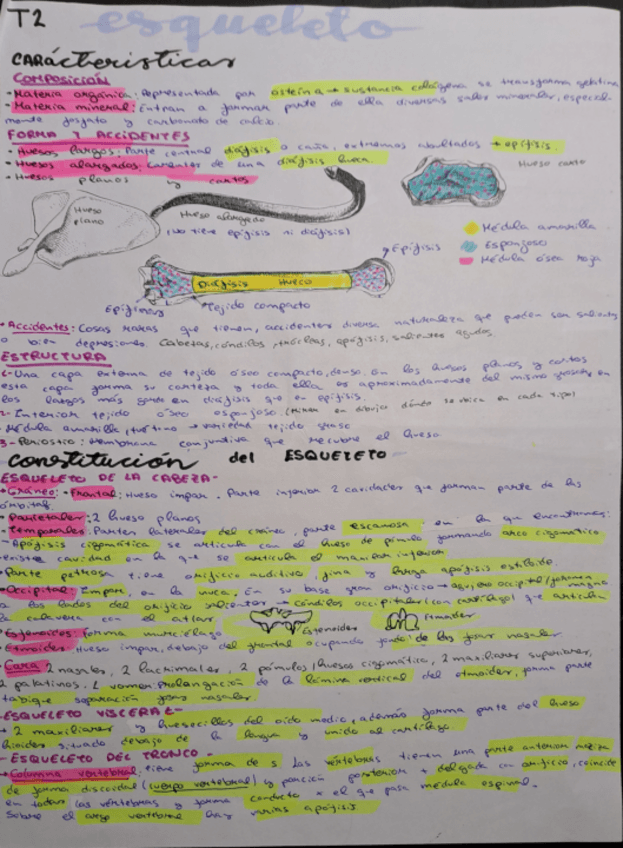 T2 esqueleto
carácteristicas
COMPOSICIÓN
• Materia orgánica: Representada por osteína → sustancia colágena se transforma gelatina
• Materia mineral: Entran a formar parte de ella diversas sales minerales, especial-
mente fosfato y carbonato de calcio.
FORMA Y ACCIDENTES
• Huesos largos: Parte central diáfisis o caña, extremos abultados → epífisis.
• Huesos alargados: Carentes de una diáfisis hueca.
• Huesos planos y cortos
Hueso corto
Hueso plano
Hueso alargado
(No tiene epífisis ni diáfisis)
Médula amarilla
Esponjoso
Médula ósea roja
Epífisis
Diáfisis Hueco
Epífisis
Tejido compacto
• Accidentes: Cosas raras que tienen, accidentes diversa naturaleza que pueden ser salientes
o bien depresiones. Cabezas, cóndilos, trócleas, apófisis, salientes agudos.
ESTRUCTURA
1- Una capa externa de tejido óseo compacto, denso. En los huesos planos y cortos
esta capa forma su corteza y toda ella es aproximadamente del mismo grosor, en
los largos más gorda en diáfisis que en epífisis.
2- Interior tejido óseo esponjoso. (Mirar en dibujo dónde se ubica en cada tipo)
• Médula amarilla, tuétano → variedad tejido graso
3- Periostio: Membrana conjuntiva que recubre el hueso
constitución del ESQUELETO
ESQUELETO DE LA CABEZA -
• Cráneo: • Frontal: Hueso impar. Parte inferior 2 cavidades que forman parte de las
órbitas.
• Parietales: 2 hueso planos
• Temporales: Partes laterales del cráneo, parte escamosa en la que encontramos:
• Apófisis cigomática se articula con el hueso de pómulo formando arco cigomático
existe cavidad en la que se articula el maxilar inferior
• Parte petrosa tiene orificio auditivo, fina y larga apófisis estiloide.
• Occipital: Impar, en la nuca. En su base gran orificio → agujero occipital/foramen magno
a los lados del orificio salientes → cóndilos occipitales (con cartílago) que articulan
la calavera con el atlas.
• Esfenoides: forma murciélago
Esfenoides
Etmoides
• Etmoides: Hueso impar, debajo del frontal ocupando fondo de las fosas nasales
• Cara 2 nasales, 2 lacrimales, 2 pómulos/huesos cigomático, 2 maxilares superiores,
2 palatinos. 1 vomer: Prolongación de la lámina vertical del etmoides, forma parte
tabique separación fosas nasales.
- ESQUELETO VISCERAL -
• 2 maxilares y huesecillos del oído medio, además forma parte del hueso
hioides, situado debajo de la lengua y unido al cartílago.
- ESQUELETO DEL TRONCO -
• Columna vertebral: tiene forma de s. Las vértebras tienen una parte anterior maciza
de forma discoidal (cuerpo vertebral) y porción posterior + delgada con orificio, coincide
en todas las vértebras y forma conducto x el que pasa médula espinal.
Sobre el arco vertebral hay varias apófisis